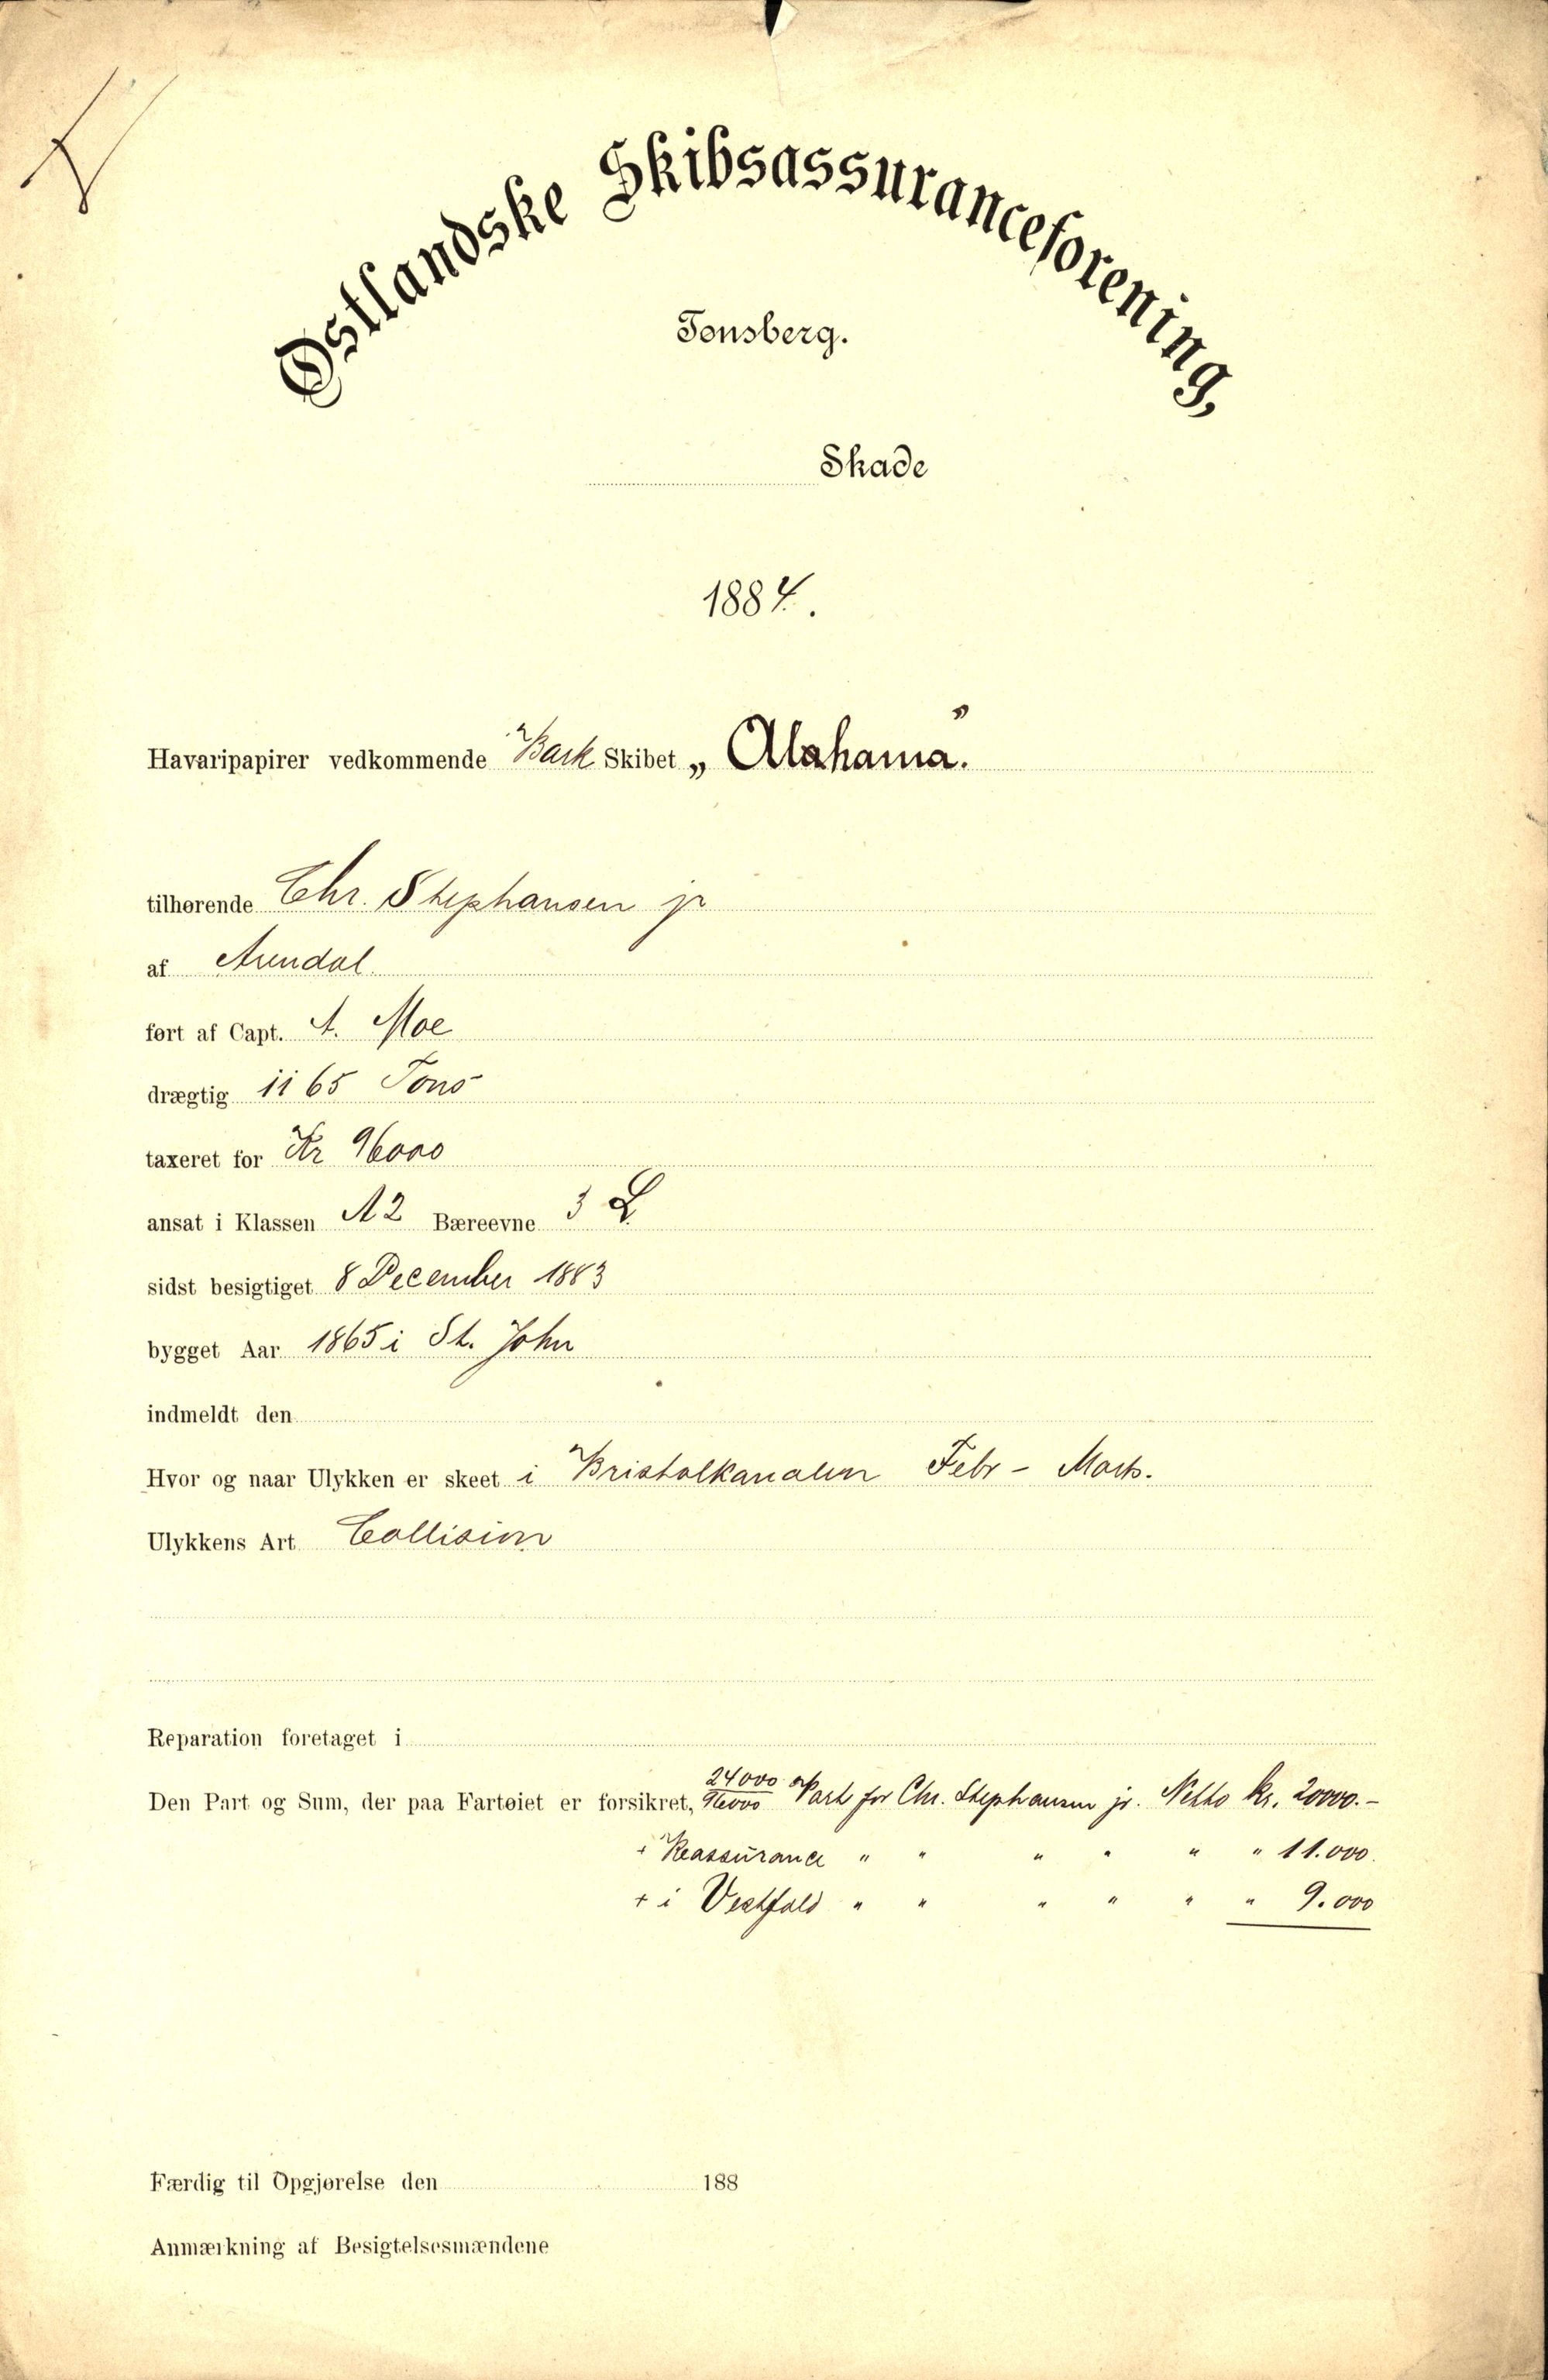 Østlandske Skibsassuranceforening,
Tønsberg.
Skade
1884.
Havaripapirer vedkommende Bark Skibet „Alahama."
tilhørende Chr. Stephansen jr
af Arendal
ført af Capt. A. Moe
drægtig 1165 Tons
taxeret for Kr 96000
ansat i Klassen A2 Bæreevne 3 L.
sidst besigtiget 8 December 1883
bygget Aar 1865 i St. John
indmeldt den
Hvor og naar Ulykken er skeet i Bristolkanalen Febr - Marts.
Ulykkens Art Collision
Reparation foretaget i
Den Part og Sum, der paa Fartøiet er forsikret, 24000/96000 Part for Chr. Stephansen jr. Netto kr. 20000.-
+ Reassurance " " " " " " 11.000.
+ i Vestfold " " " " " " 9.000
Færdig til Opgjørelse den 188
Anmærkning af Besigtelsesmændene